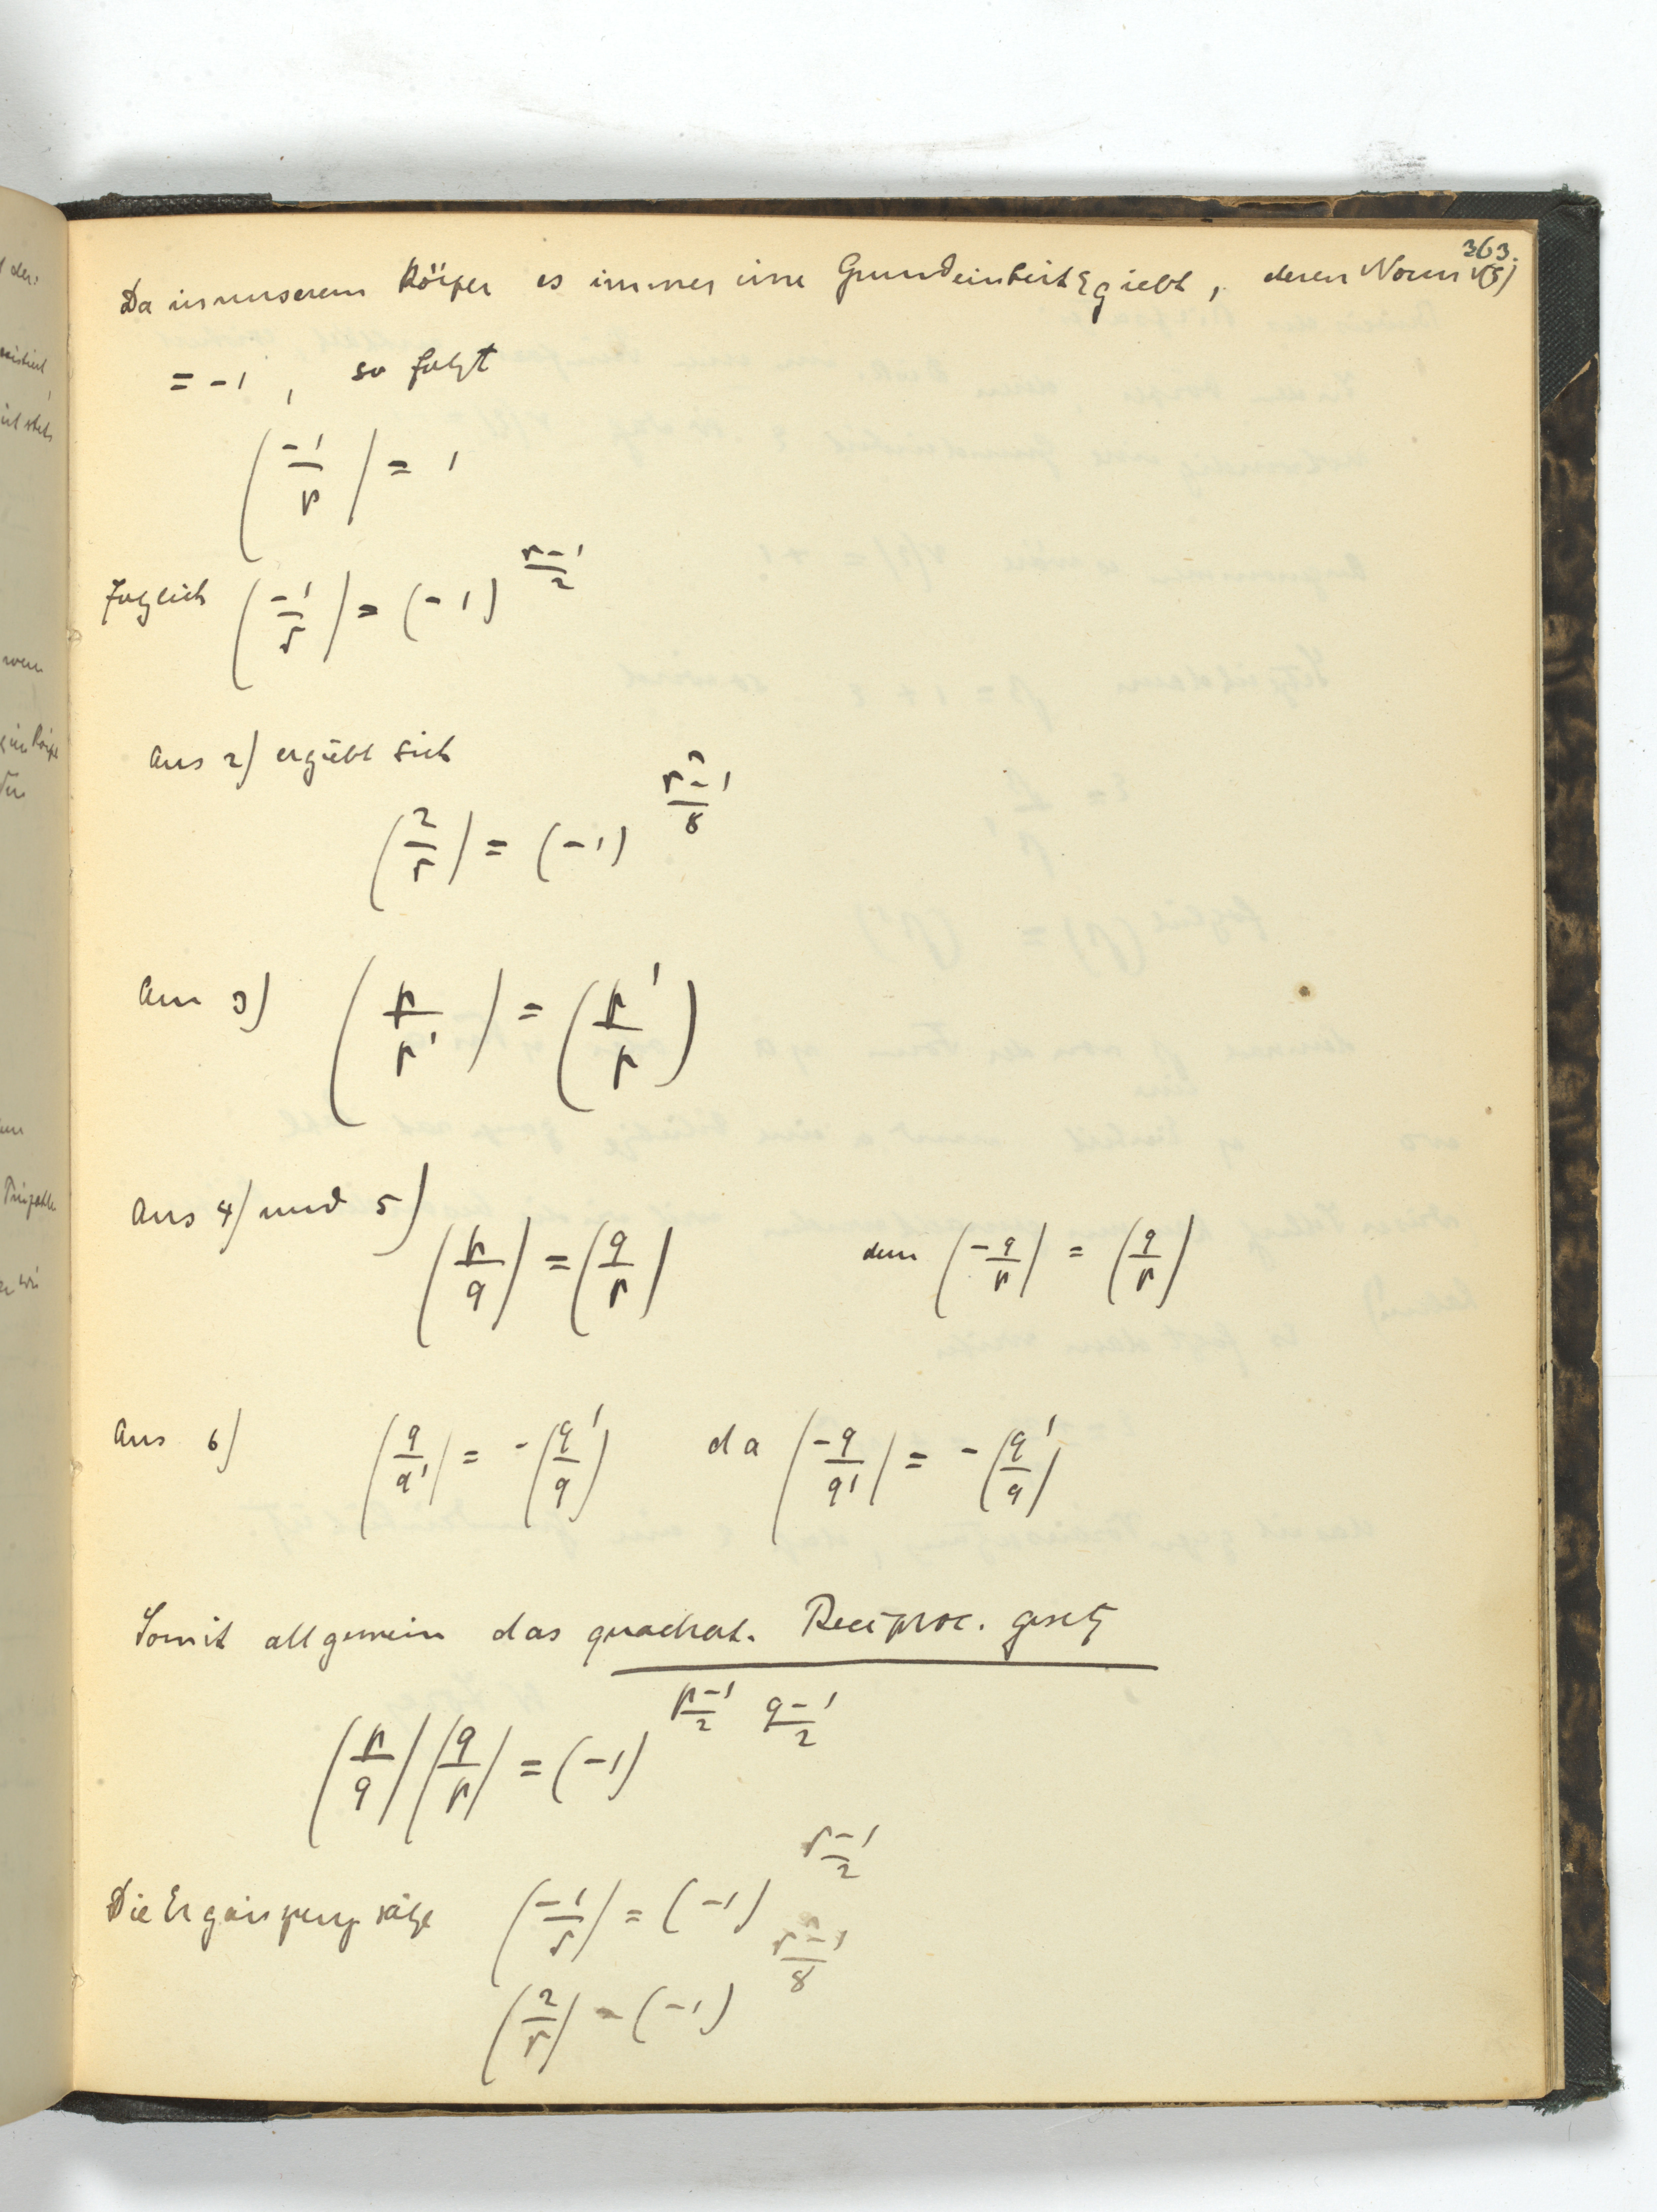 363.
Da in unserem Körper es immer eine Grundeinheit ε giebt, deren Norm ν(ε)
= -1, so folgt
(-1/p) = 1
folglich (-1/r) = (-1)^{(r-1)/2}
Aus 2) ergiebt sich
(2/r) = (-1)^{(r²-1)/8}
Aus 3) (p/p') = (p'/p)
Aus 4) und 5) (p/q) = (q/p) denn (-q/p) = (q/p)
Aus 6) (q/q') = -(q'/q) da (-q/q') = -(q'/q)
Somit allgemein das quadrat. Reciproc. gesetz
(p/q)(q/p) = (-1)^{(p-1)/2 (q-1)/2}
Die Ergänzungssätze (-1/r) = (-1)^{(r-1)/2}
(2/r) = (-1)^{(r²-1)/8}